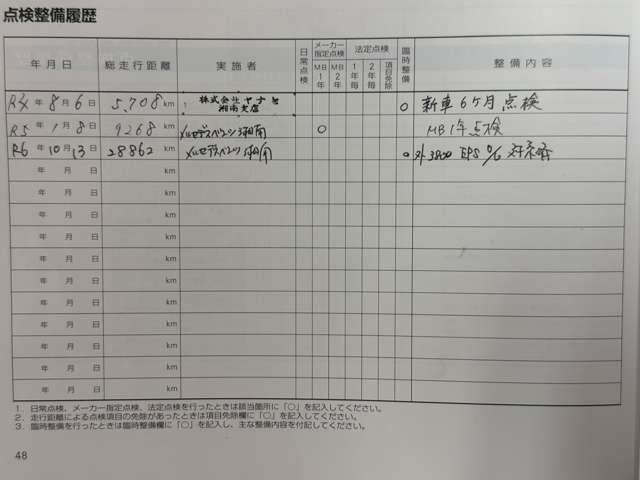 点検整備履歴
年月日 総走行距離 実施者 日常点検 メーカー指定点検 MB1年 MB2年 法定点検 1年毎 2年毎 項目免除 臨時整備 整備内容
R4年8月6日 5,708km 株式会社ヤナセ 湘南支店 ○ 新車6ケ月点検
R5年1月8日 9268km メルセデスベンツ湘南 ○ MB1年点検
R6年10月13日 28862km メルセデスベンツ湘南 ○ EPS
年 月 日 km
年 月 日 km
年 月 日 km
年 月 日 km
年 月 日 km
年 月 日 km
年 月 日 km
年 月 日 km
年 月 日 km
年 月 日 km
年 月 日 km
1．日常点検、メーカー指定点検、法定点検を行ったときは該当箇所に「○」を記入してください。
2．走行距離による点検項目の免除があったときは項目免除欄に「○」を記入してください。
3．臨時整備を行ったときは臨時整備欄に「○」を記入し、主な整備内容を付記してください。
48